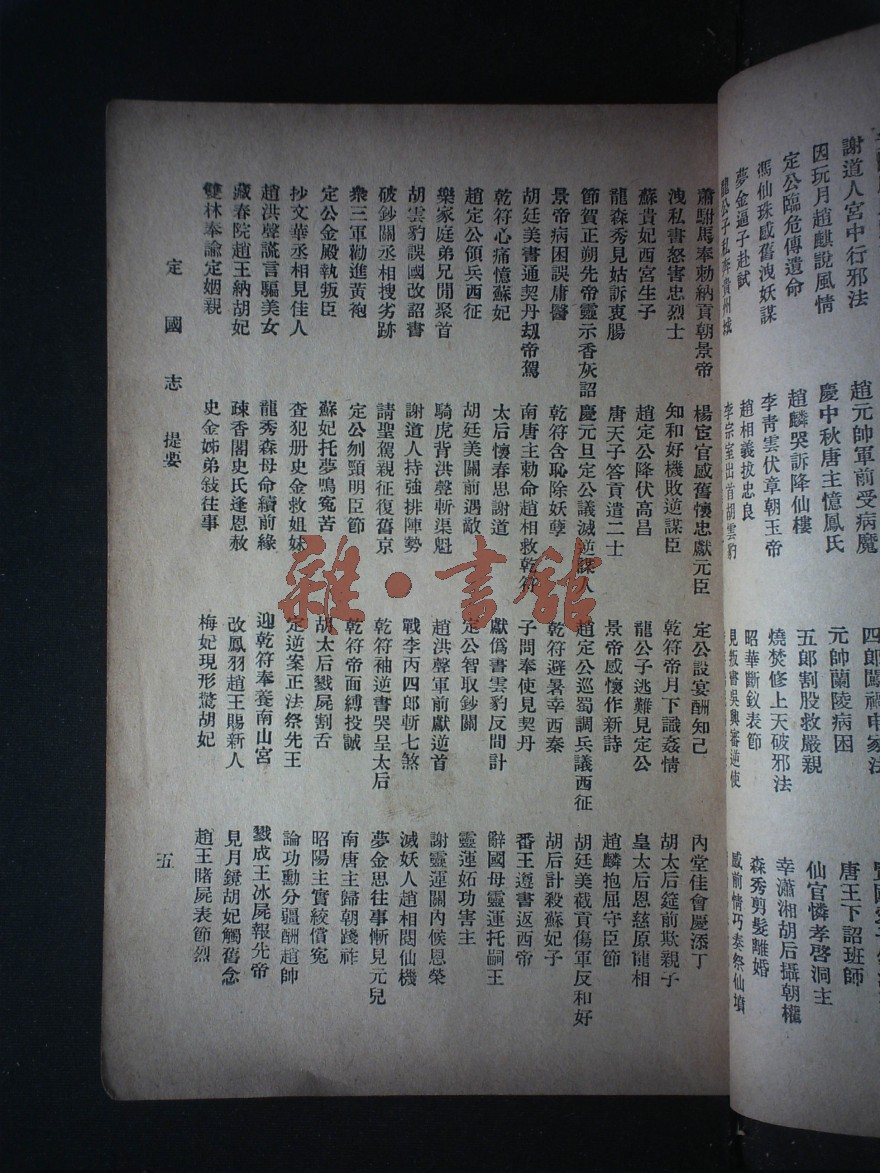 謝道人宮中行邪法 趙元帥軍前受病魔 四郎闖禍申家法
因玩月趙麒說風情 慶中秋唐主憶鳳氏 元帥蘭陵病困 唐王下詔班師
定公臨危傳遺命 趙麟哭訴降仙樓 五郎割股救嚴親 仙官憐孝啓洞主
馮仙珠感舊洩妖謀 李青雲伏章朝玉帝 燒焚修上天破邪法 幸瀟湘胡后攝朝權
夢金逼子赴試 趙相義扳忠良 昭華斷釵表節 森秀剪髮離婚
龍公子私奔貴州城 李宗室出首胡雲豹 見叛書吳興審逆使 感前情巧奏祭仙墳
蕭駙馬奉勅納貢朝景帝 楊宦官感舊懷忠獻元臣 定公設宴酬知己 內堂佳會慶添丁
洩私書怒害忠烈士 知和好機敗逆謀臣 乾符帝月下識姦情 胡太后筵前欺親子
蘇貴妃西宮生子 趙定公降伏高昌 龍公子逃難見定公 皇太后恩慈原寵相
龍森秀見姑訴衷腸 唐天子答貢遣二士 景帝感懷作新詩 趙麟抱屈守臣節
節賀正朔先帝靈示香灰詔 慶元旦定公議滅逆謀人 趙定公巡蜀調兵議西征 胡廷美截貢傷軍反和好
景帝病困誤庸醫 乾符含恥除妖孽 乾符避暑幸西秦 胡后計殺蘇妃子
胡廷美書通契丹刼帝駕 南唐主勅命趙相救乾符 子問奉使見契丹 番王遵書返西帝
乾符心痛憶蘇妃 太后懷春思謝道 獻僞書雲豹反間計 辭國母靈運托嗣王
趙定公領兵西征 胡廷美關前遇敵 定公智取鈔關 靈運妬功害主
樂家庭弟兄閒聚首 騎虎背洪聲斬渠魁 趙洪聲軍前獻逆首 謝靈運關內候恩榮
胡雲豹誤國改詔書 謝道人持強排陣勢 戰李丙四郎斬七煞 滅妖人趙相閱仙機
破鈔關丞相搜劣跡 請聖駕親征復舊京 乾符袖逆書哭呈太后 夢金思往事慚見元兒
衆三軍勸進黃袍 定公刎頸明臣節 乾符帝面縛投誠 南唐主歸朝踐祚
定公金殿執叛臣 蘇妃托夢鳴冤苦 胡太后戮屍割舌 昭陽主實絞償冤
抄文華丞相見佳人 查犯册史金救姐妹 定逆案正法祭先王 論功勳分疆酬趙帥
趙洪聲謊言騙美女 龍秀森母命續前緣 迎乾符奉養南山宮 戮成王冰屍報先帝
藏春院趙王納胡妃 疎香閣史氏逢恩赦 改鳳羽趙王賜新人 見月鏡胡妃觸舊念
雙林奉諭定姻親 史金姊弟敍往事 梅妃現形驚胡妃 趙王賭屍表節烈
定國志 提要 五
雜·書館